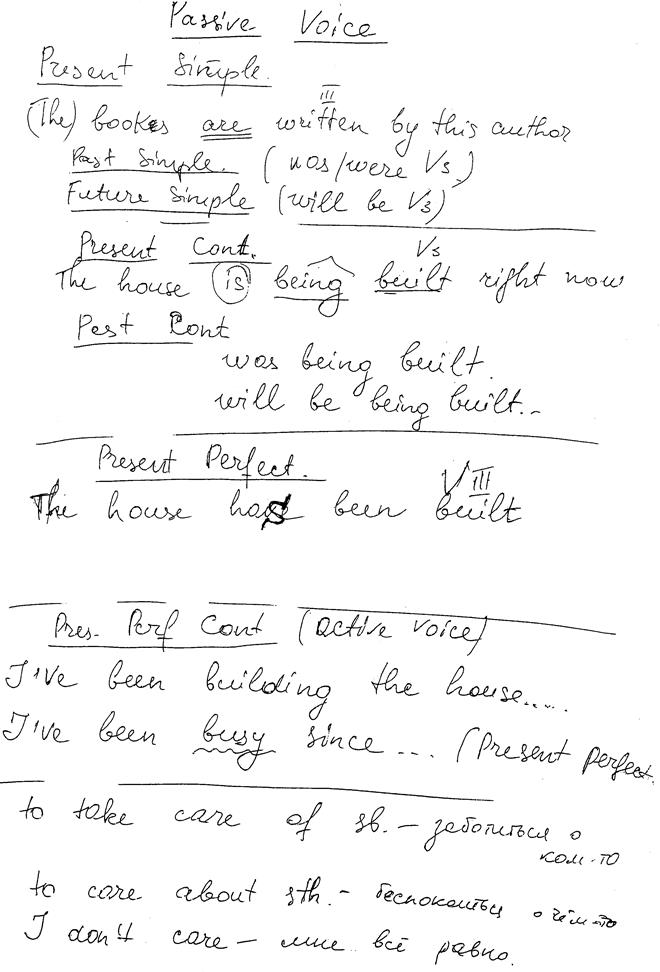 Passive Voice
Present Simple.
III
(The) books are written by this author
Past Simple. (was/were V3)
Future Simple (will be V3)
Present Cont. V3
The house is being built right now
Past Cont
was being built.
will be being built..
Present Perfect. VIII
The house has been built
Pres. Perf Cont (active voice)
I've been building the house.....
I've been busy since ... (Present perfect.
to take care of sb. – заботиться о
ком-то
to care about sth. – беспокоиться о чём-то
I don't care – мне всё равно.